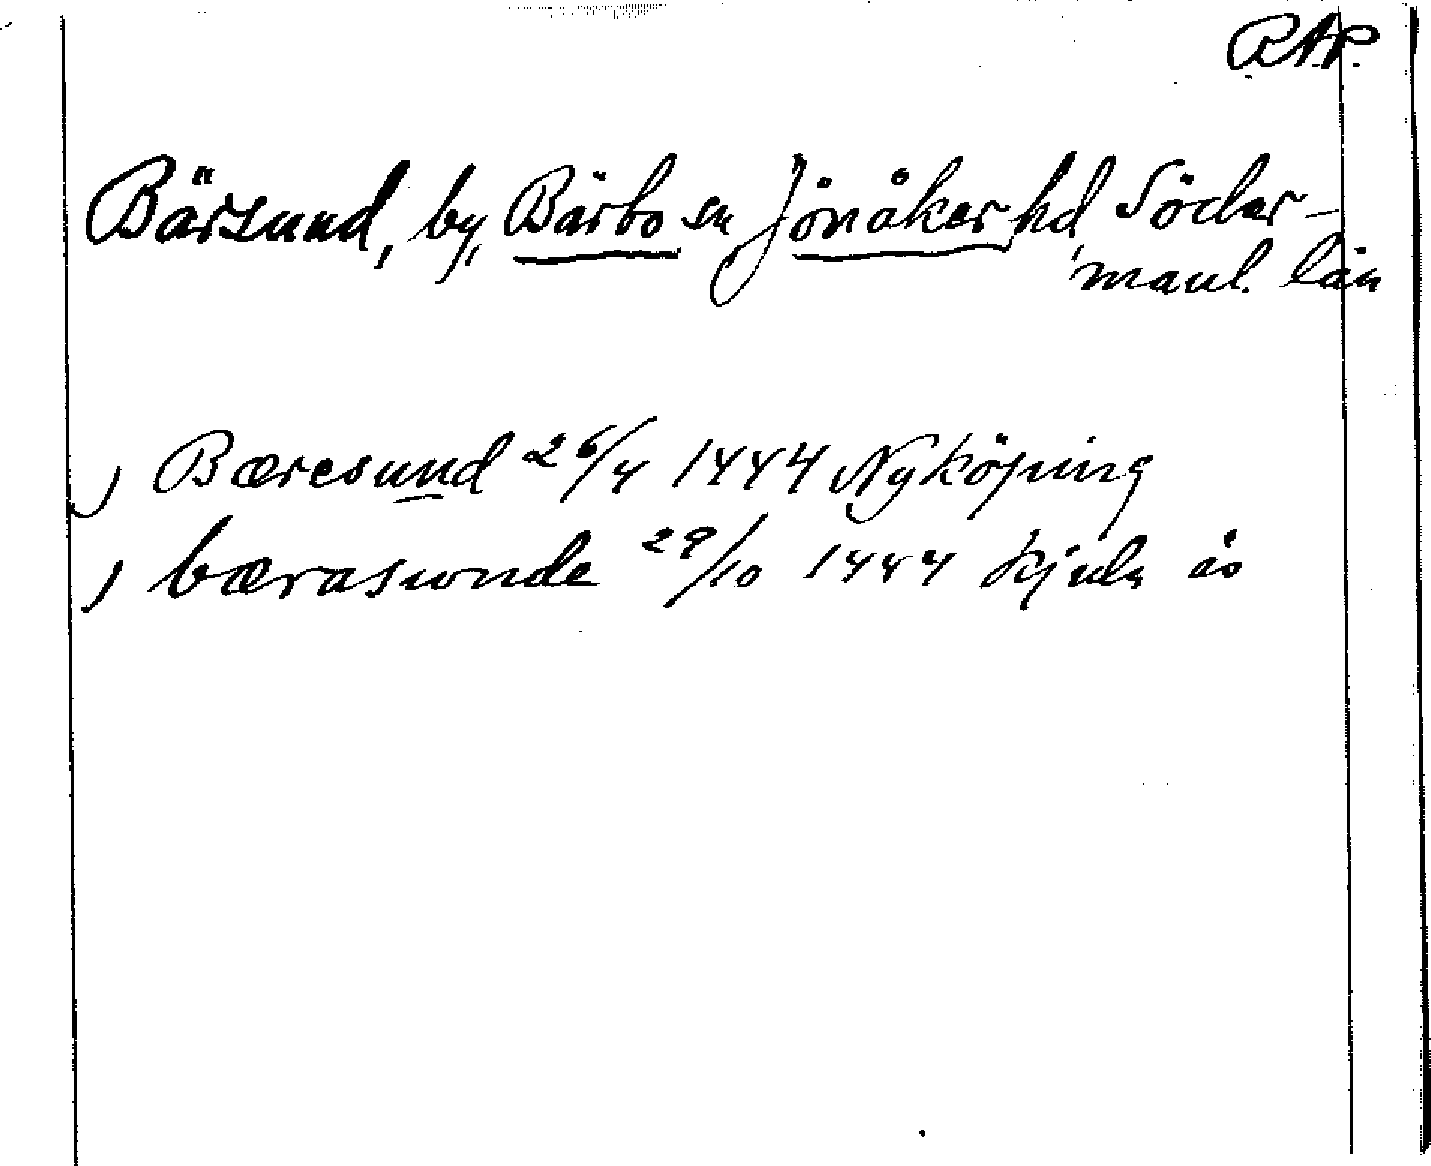 R.A.P.
Bärsund, by, Bärbo sn Jönåker hd, Söder-
manl. län
) Bæresund 26/4 1444 Nyköping
) bærasunde 29/10 1444 Kjula ås